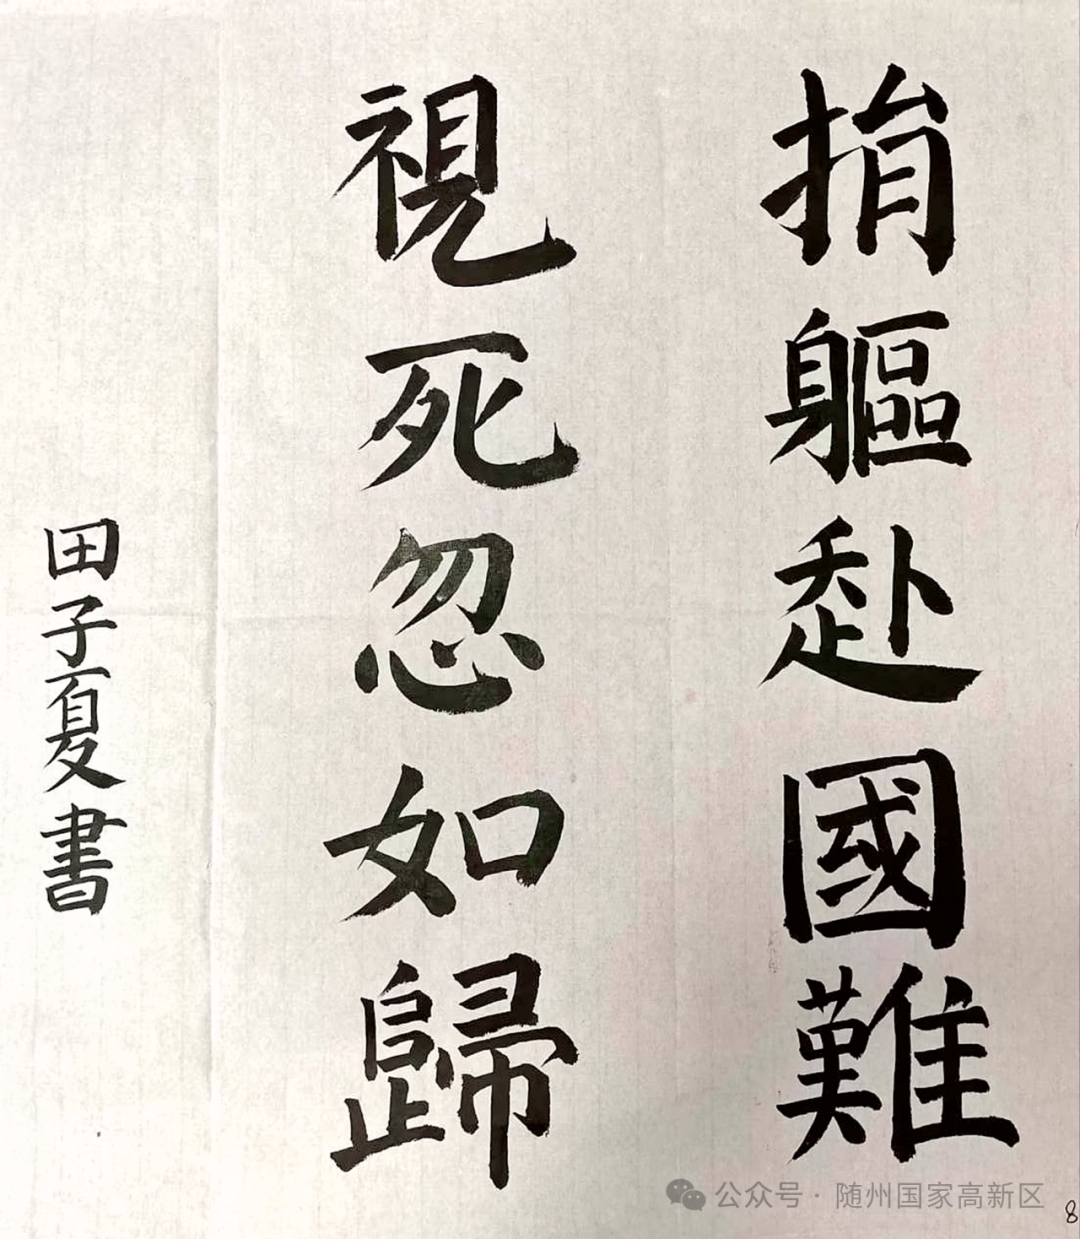 捐軀赴國難
視死忽如歸
田子夏書
公众号 · 随州国家高新区
8